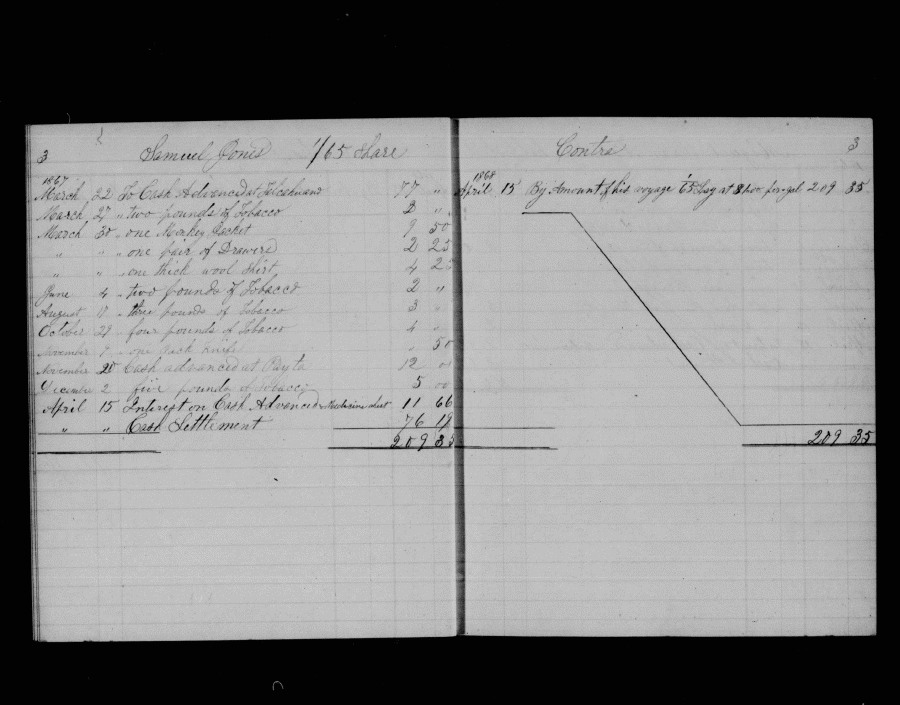 3 Samuel Jones 1/65 Share
1867
March 22 To Cash Advanced at 77 "
March 27 " two pounds of Tobacco 2 "
March 30 " one Monkey Jacket 9 50
" " " one pair of Drawers 2 25
" " " one thick wool shirt 4 25
June 4 " two pounds of Tobacco 2 "
August " three pounds of Tobacco 3 "
October 29 " four pounds of Tobacco 4 "
November 7 " one Jack Knife " 50
November 20 Cash advanced at Payta 12 00
December 2 five pounds of Tobacco 5 00
April 15 Interest on Cash Advanced 11 66
" " Cash Settlement 76 19
209 35
Contra 3
1868
April 15 By Amount of his voyage 1/65 Lay at per gal 209 35
209 35